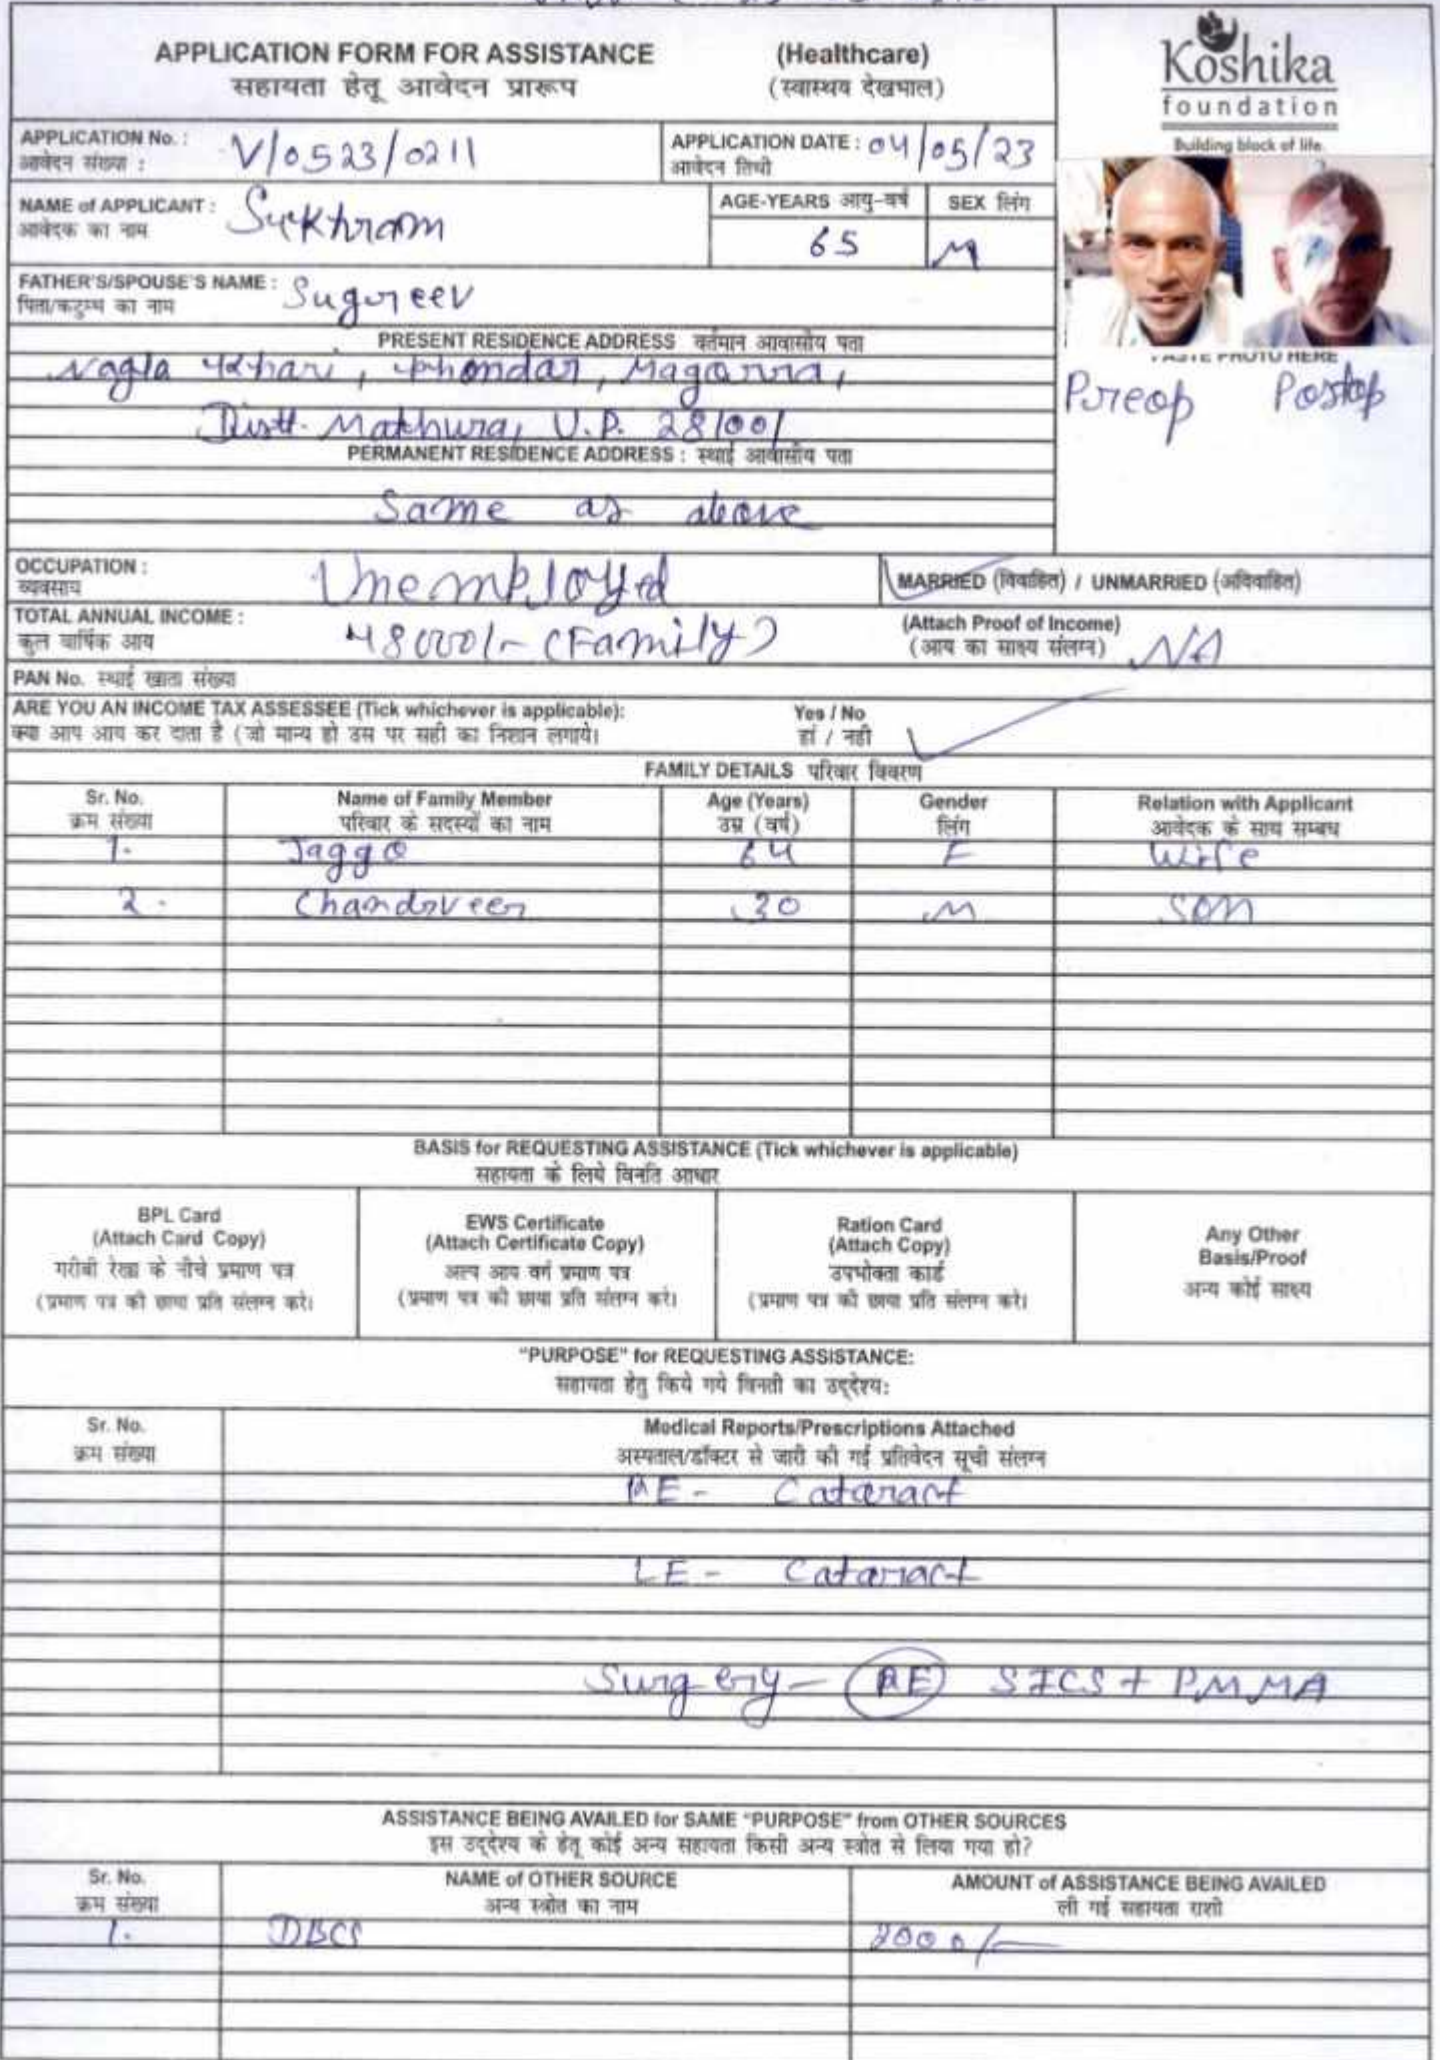 APPLICATION FORM FOR ASSISTANCE (Healthcare)
सहायता हेतू आवेदन प्रारूप (स्वास्थय देखभाल)
Koshika
foundation
Building block of life
APPLICATION No. : V/0523/0211 APPLICATION DATE : 04/05/23
आवेदन संख्या : आवेदन तिथी
NAME of APPLICANT : Sukhram AGE-YEARS आयु-वर्ष SEX लिंग
आवेदक का नाम 65 M
FATHER'S/SPOUSE'S NAME : Sugreev
पिता/कटुम्ब का नाम
PRESENT RESIDENCE ADDRESS वर्तमान आवासीय पता
Nagla Magorra,
Distt. Mathura, U.P. 281001
PASTE PHOTO HERE
Preop Postop
PERMANENT RESIDENCE ADDRESS : स्थाई आवासीय पता
Same as above
OCCUPATION : Unemployed MARRIED (विवाहित) / UNMARRIED (अविवाहित)
व्यवसाय
TOTAL ANNUAL INCOME : 48000/- (Family) (Attach Proof of Income) NA
कुल वार्षिक आय (आय का साक्ष्य संलग्न)
PAN No. स्थाई खाता संख्या
ARE YOU AN INCOME TAX ASSESSEE (Tick whichever is applicable): Yes / No
क्या आप आय कर दाता है (जो मान्य हो उस पर सही का निशान लगाये। हां / नही
FAMILY DETAILS परिवार विवरण
Sr. No. Name of Family Member Age (Years) Gender Relation with Applicant
क्रम संख्या परिवार के सदस्यों का नाम उम्र (वर्ष) लिंग आवेदक के साथ सम्बध
1. Jaggo 64 F Wife
2. Chandrveer 30 M Son
BASIS for REQUESTING ASSISTANCE (Tick whichever is applicable)
सहायता के लिये विनति आधार
BPL Card
(Attach Card Copy)
गरीबी रेखा के नीचे प्रमाण पत्र
(प्रमाण पत्र की छाया प्रति संलग्न करे।
EWS Certificate
(Attach Certificate Copy)
अल्प आय वर्ग प्रमाण पत्र
(प्रमाण पत्र की छाया प्रति संलग्न करे।
Ration Card
(Attach Copy)
उपभोक्ता कार्ड
(प्रमाण पत्र की छाया प्रति संलग्न करे।
Any Other
Basis/Proof
अन्य कोई साक्ष्य
"PURPOSE" for REQUESTING ASSISTANCE:
सहायता हेतु किये गये विनती का उद्देश्य:
Sr. No. Medical Reports/Prescriptions Attached
क्रम संख्या अस्पताल/डॉक्टर से जारी की गई प्रतिवेदन सूची संलग्न
RE - Cataract
LE - Cataract
Surgery - RE SICS + PMMA
ASSISTANCE BEING AVAILED for SAME "PURPOSE" from OTHER SOURCES
इस उद्देश्य के हेतू कोई अन्य सहायता किसी अन्य स्त्रोत से लिया गया हो?
Sr. No. NAME of OTHER SOURCE AMOUNT of ASSISTANCE BEING AVAILED
क्रम संख्या अन्य स्त्रोत का नाम ली गई सहायता राशी
1. DBCS 2000/-